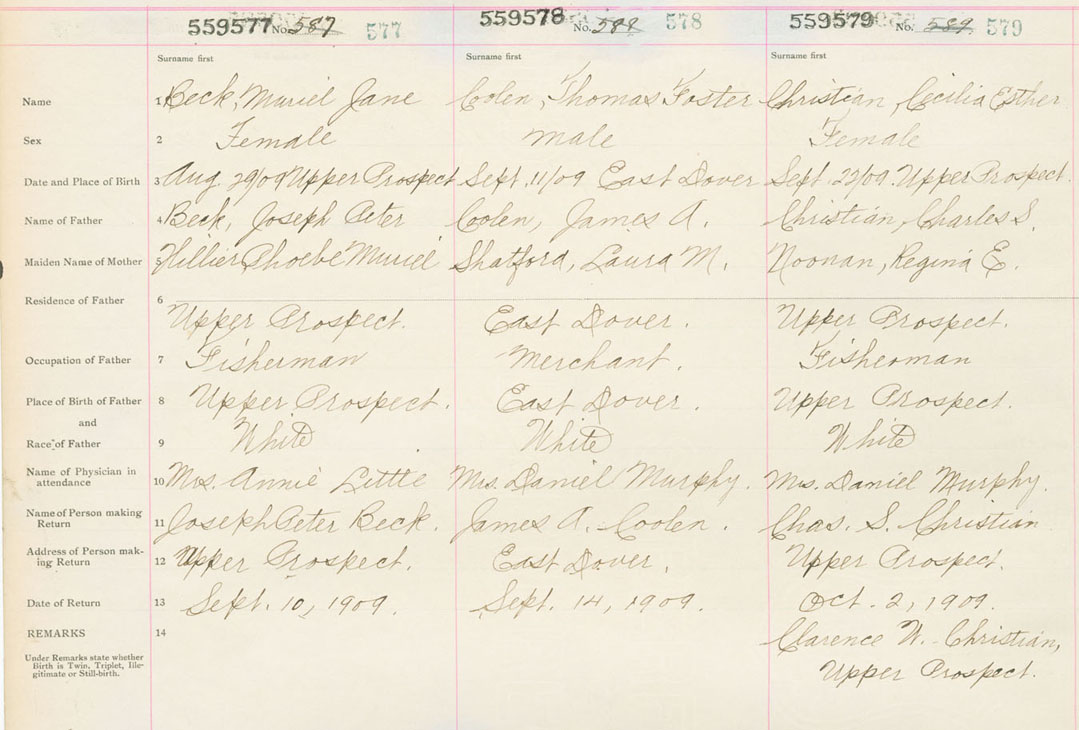 559577 No. 587 577 559578 No. 588 578 559579 No. 589 579
Surname first Surname first Surname first
Name 1 Beck, Muriel Jane Coolen, Thomas Foster Christian, Cecilia Esther
Sex 2 Female male Female
Date and Place of Birth 3 Aug 29/09 Upper Prospect Sept. 11/09 East Dover Sept. 22/09. Upper Prospect.
Name of Father 4 Beck, Joseph Peter Coolen, James A. Christian, Charles S.
Maiden Name of Mother 5 Hillier Phoebe Muriel Shatford, Laura M. Noonan, Regina E.
Residence of Father 6
Upper Prospect. East Dover. Upper Prospect.
Occupation of Father 7 Fisherman Merchant. Fisherman
Place of Birth of Father 8 Upper Prospect. East Dover. Upper Prospect.
and
Race of Father 9 White White White
Name of Physician in
attendance 10 Mrs. Annie Little Mrs. Daniel Murphy. Mrs. Daniel Murphy.
Name of Person making
Return 11 Joseph Peter Beck. James A. Coolen. Chas. S. Christian
Address of Person mak-
ing Return 12 Upper Prospect. East Dover. Upper Prospect.
Date of Return 13 Sept. 10, 1909. Sept. 14, 1909. Oct. 2, 1909.
REMARKS 14 Clarence W. Christian,
Under Remarks state whether
Birth is Twin, Triplet, Ille-
gitimate or Still-birth. Upper Prospect.